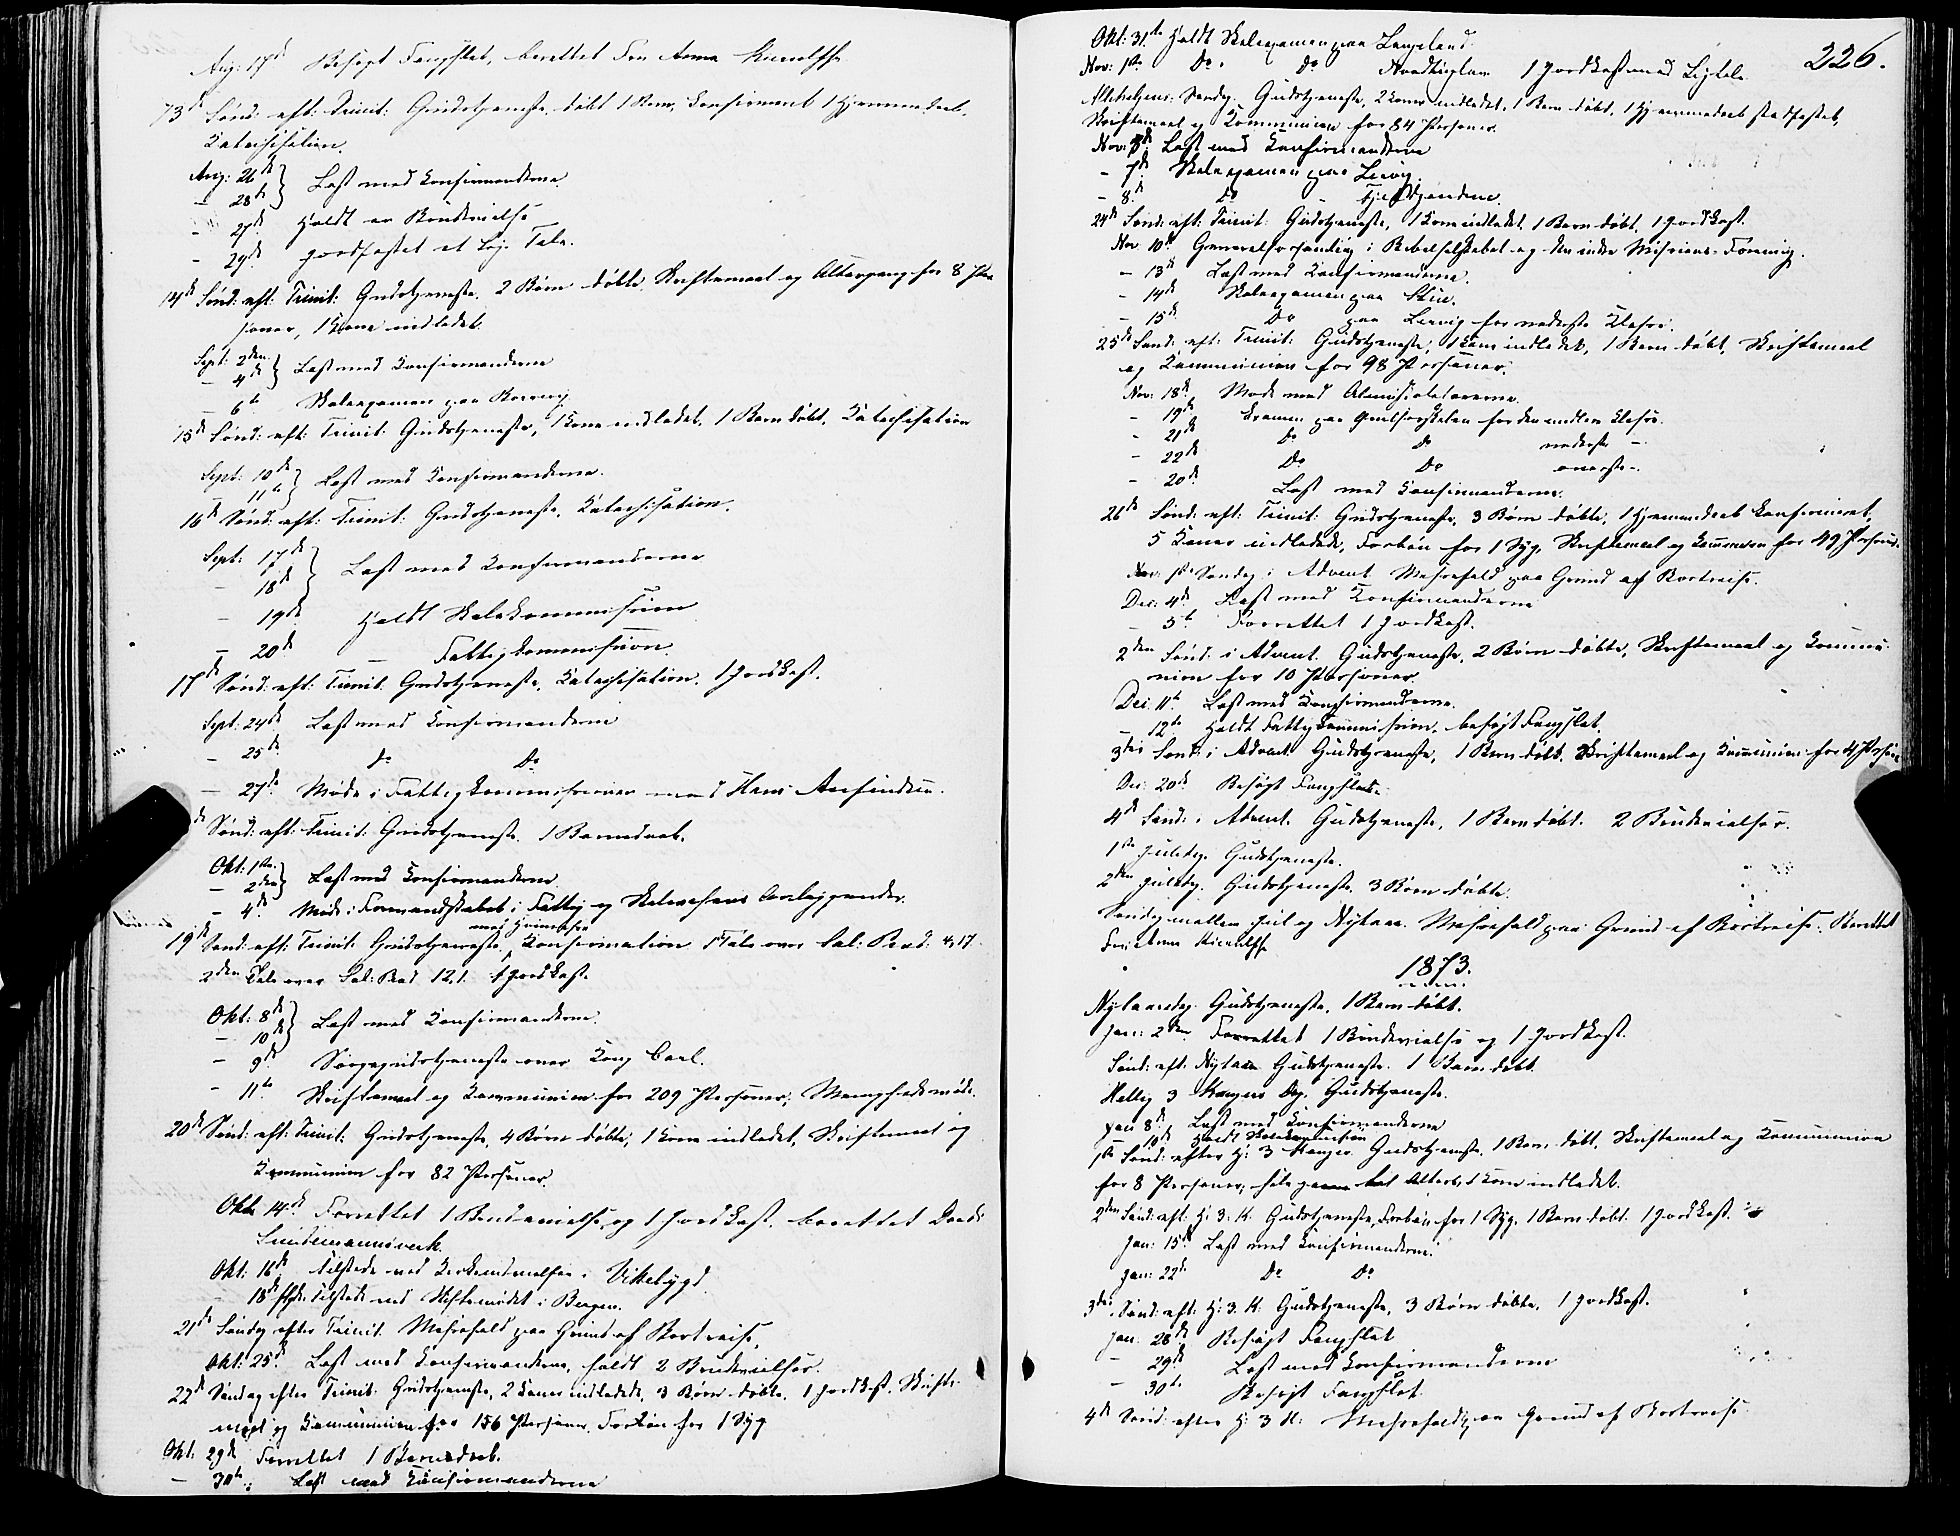 Aug: 17de Besøgt Fængslet, berettet Fru Anna
13de Sønd: eft: Trinit: Gudstjeneste, døbt 1 Barn, konfirmeret 1 Hjemmedøbt,
Katechisation.
Aug: 26de } Læst med Konfirmanderne
- 28de
- 27de Holdt en Brudevielse
- 29de jordfæstet et Lig. Tale.
14de Sønd: eft: Trinit: Gudstjeneste. 2 Børn døbte, Skriftemaal og Altergang for 8 Per-
soner, 1 Kone indledet.
Sept: 2den } Læst med Konfirmanderne
- 4de
- 6te Skoleexamen paa
15de Sønd: eft: Trinit: Gudstjeneste, 1 Kone indledet. 1 Barn døbt. Katechisation
Sept: 10de } Læst med Konfirmanderne.
11te
16de Sønd: eft: Trinit: Gudstjeneste, Katechisation.
Sept: 17de } Læst med Konfirmanderne
- 18de
- 19de Holdt Skolekommission
- 20de — Fattigkommission.
17de Sønd: eft: Trinit. Gudstjeneste, Katechisation. 1 Jordkast.
Sept: 24de Læst med Konfirmanderne
- 25de Do Do
- 27de Møde i Fattigkommissionen med Hans
de Sønd: eft: Trinit: Gudstjeneste. 1 Barnedaab.
Okt: 1ste } Læst med Konfirmanderne
- 2den
- 4de Møde i Formandskabet i Fattig og Skolevæsens Anliggender.
19de Sønd: eft: Trinit: Gudstjeneste, Konfirmation 1 Tale over Sal: 4,17.
2den Tale over Sal: Præd 12,1. 1 Jordkast.
Okt: 8de } Læst med Konfirmanderne.
- 10de
- 9de Sørgegudstjeneste over Kong Carl.
- 11te Skriftemaal og Kommunion for 209 Personer,
20de Sønd: eft: Trinit: Gudstjeneste, 4 Børn døbte, 1 Kone indledet, Skriftemaal og
Kommunion for 82 Personer.
Okt: 14de Forrettet 1 Brudevielse og 1 Jordkast, berettet
Okt: 16de tilstede ved Kirkeindvielsen i Vikebygd.
- 18de tilstede ved Stiftsmødet i Bergen.
21de Søndag efter Trinit. Messefald paa Grund af Bortreise.
Okt: 25de Læst med Konfirmanderne, holdt 2 Brudevielser.
22de Søndag efter Trinit: Gudstjeneste, 2 Koner indledede, 3 Børn døbte. 1 Jordkast. Skrifte-
maal og Kommunion for 156 Personer. Forbøn for 1 Syg
Okt: 29de Forrettet 1 Barnedaab.
- 30te Læst med Konfirmanderne
226.
Okt: 31te Holdt Skoleexamen paa Langeland.
Nov: 1ste Do. Do 1 Jordkast med Ligtale
Allehelgens Søndag. Gudstjeneste, 2 Koner indledet, 1 Barn døbt, 1 Hjemmedøbt stadfæstet,
Skriftemaal og Kommunion for 84 Personer.
Nov: Læst med Konfirmanderne
- 7de Skoleexamen paa Lervig.
- 8de Do
24de Sønd: eft: Trinit: Gudstjeneste, 1 Kone indledet, 1 Barn døbt, 1 Jordkast.
Nov 10de Generalforsamling i Bibelselskabet og den indre Missions-Forening.
- 13de Læst med Konfirmanderne.
- 14de Skoleexamen paa
- 15de Do paa Lervig for nederste Klasse.
25de Sønd: eft: Trinit: Gudstjeneste, 1 Kone indledet, 1 Barn døbt, Skriftemaal
og Kommunion for 98 Personer.
Nov: 18de Møde med
- 19de Examen paa for den midlere Klasse.
- 21de Do Do nederste -
- 22de Do Do øverste -.
- 20de Læst med Konfirmanderne.
26de Sønd: eft: Trinit: Gudstjeneste, 3 Børn døbte, 1 Hjemmedøbt konfirmeret,
5 Koner indledede, Forbøn for 1 Syg, Skriftemaal og Kommunion for 49 Personer.
1ste Søndag i Advent. Messefald paa Grund af Bortreise.
Dec: 4de Læst med Konfirmanderne
- 5te Forrettet 1 Jordkast.
2den Sønd: i Advent. Gudstjeneste, 2 Børn døbte, Skriftemaal og Kommu-
nion for 10 Personer
Dec: 11te Læst med Konfirmanderne.
- 12te Holdt Fattigkommission, besøgt Fængslet.
3die Sønd: i Advent Gudstjeneste, 1 Barn døbt. Skriftemaal og Kommunion for 4 Personer
Dec: 20de Besøgt Fængslet.
4de Sønd: i Advent. Gudstjeneste, 1 Barn døbt. 2 Brudevielser.
1ste Juledag. Gudstjeneste.
2den Juledag. Gudstjeneste. 3 Børn døbte.
Søndag mellem Jul og Nytaar. Messefald paa Grund af Bortreise. Berettet
Fru Anna
1873.
Nytaarsdag. Gudstjeneste. 1 Barn døbt.
Jan: 2den Forrettet 1 Brudevielse og 1 Jordkast.
Sønd: eft: Nytaar Gudstjeneste. 1 Barn døbt.
Hellig 3 Konger Dag. Gudstjeneste.
Jan 8de Læst med Konfirmanderne
- 10de Holdt Skolekommission
1ste Sønd: efter H: 3 Konger. Gudstjeneste, 1 Barn døbt, Skriftemaal og Kommunion
for 8 Personer, 1 Kone indledet.
2den Sønd: eft: H: 3: K. Gudstjeneste, Forbøn for 1 Syg. 1 Barn døbt. 1 Jordkast.
Jan: 15de Læst med Konfirmanderne.
Jan: 22de Do Do
3die Sønd: eft: H: 3. K: Gudstjeneste, 3 Børn døbte, 1 Jordkast.
Jan: 28de Besøgt Fængslet
- 29de Læst med Konfirmanderne
- 30te Besøgt Fængslet.
4de Sønd: efter H: 3 K: Messefald paa Grund af Bortreise